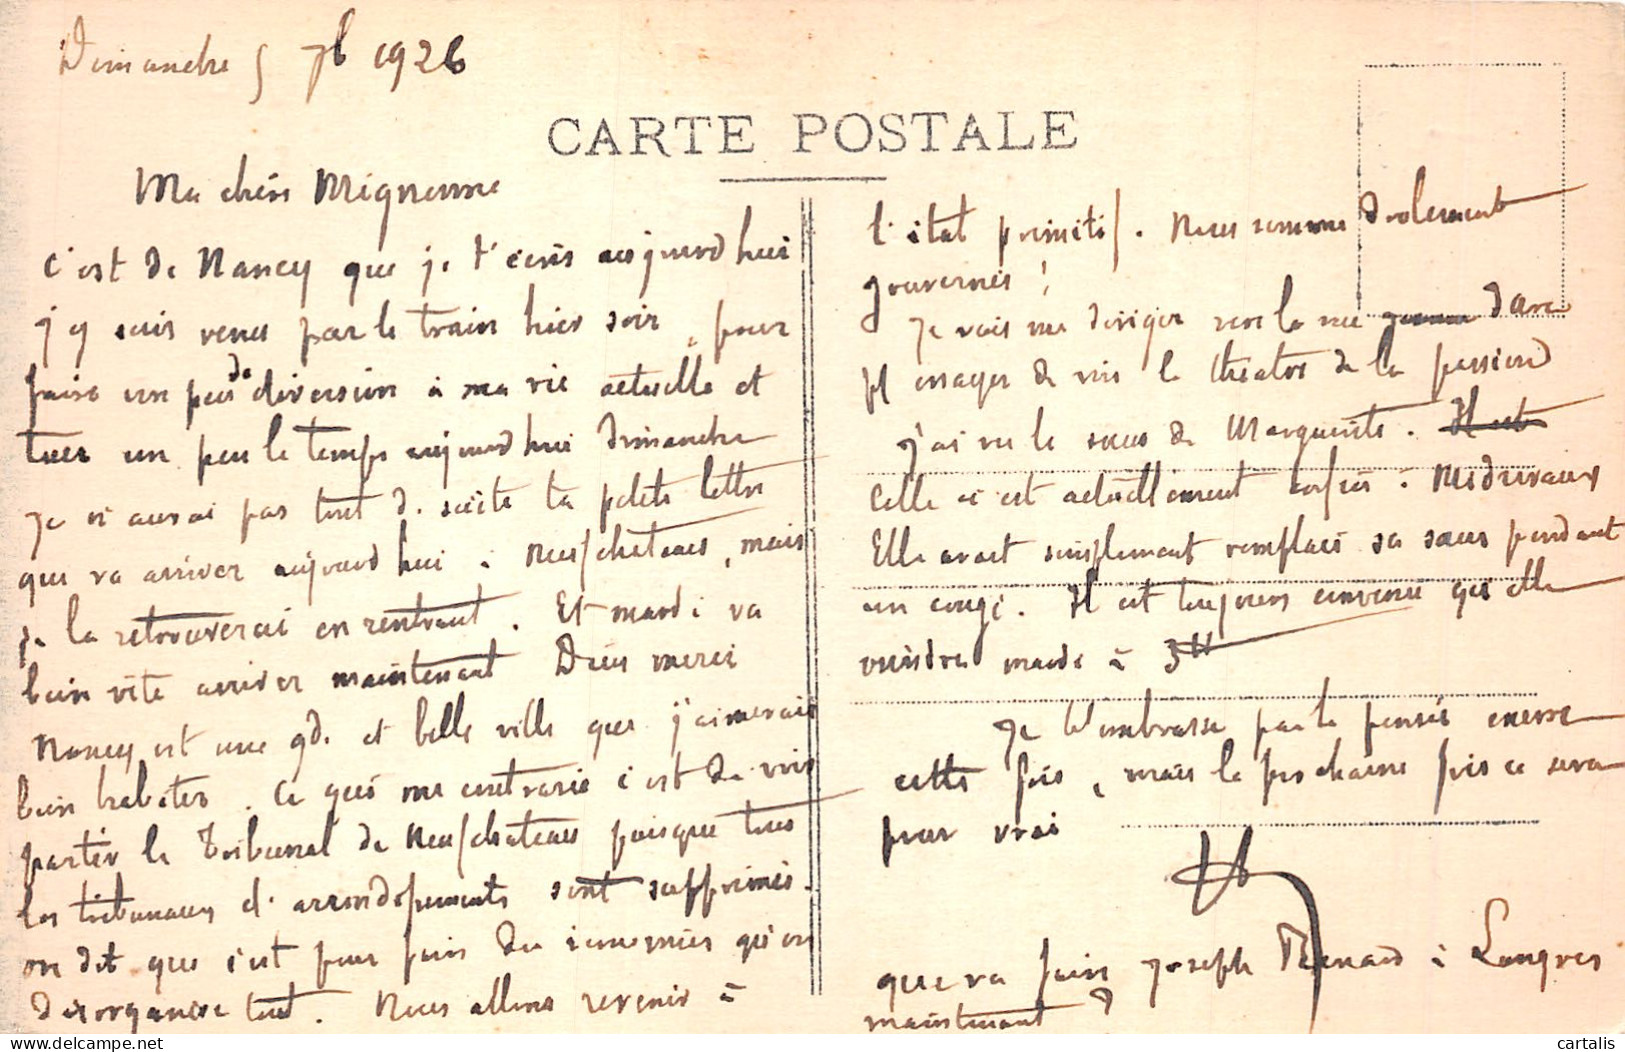 Dimanche 5 7b 1926
CARTE POSTALE
Ma chère Mignonne
C'est de Nancy que je t'écris aujourd'hui
j'y suis venu par le train hier soir, pour
faire un peu de diversion à ma vie actuelle et
tuer un peu le temps aujourd'hui dimanche
Je n'aurai pas tout d. suite ta petite lettre
qui va arriver aujourd'hui à Neufchateau, mais
je la retrouverai en rentrant. Et mardi va
bien vite arriver maintenant Dieu merci
Nancy est une gde et belle ville que j'aimerais
bien habiter. Ce qui me contrarie c'est de voir
partir le Tribunal de Neufchateau puisque tous
les tribunaux d'arrondissements sont supprimés.
on dit que c'est pour faire des économies qu'on
désorganise tout. Nous allons revenir à
l'état primitif. Nous sommes drolement
gouvernés!
Je vais me diriger vers la rue Jeanne d'Arc
et essayer de voir le théatre de la passion
J'ai vu la soeur de Marguerite. Il est
Celle ci est actuellement à Médrevaux
Elle avait simplement remplacé sa soeur pendant
un congé. Il est toujours convenu qu'elle
viendra mardi à 3H
Je t'embrasse par la pensée encore
cette fois, mais la prochaine fois ce sera
pour vrai
que va faire Joseph Renard à Langres
maintenant?
cartalis